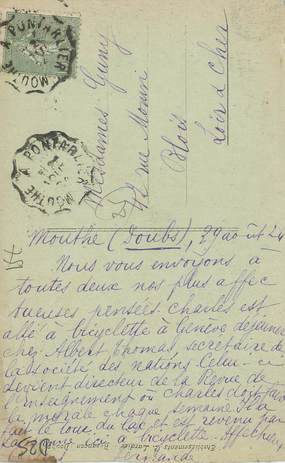 MOUTHE A PONTARLIER
MOUTHE A PONTARLIER
Mesdames Guny
rue Monin
Blois
Loir & Cher
Mouthe (Doubs), 29 août 24
Nous vous envoyons à
toutes deux nos plus affec
tueuses pensées. Charles est
allé à bicyclette à Genève déjeuner
chez Albert Thomas, secrétaire de
la société des nations. Celui-ci
devient directeur de la Revue de
l'enseignement où Charles doit faire
la morale chaque semaine. Il a
fait le tour du lac et est revenu par
à bicyclette.
Fernande
Etablissements C. Lardier, Besançon